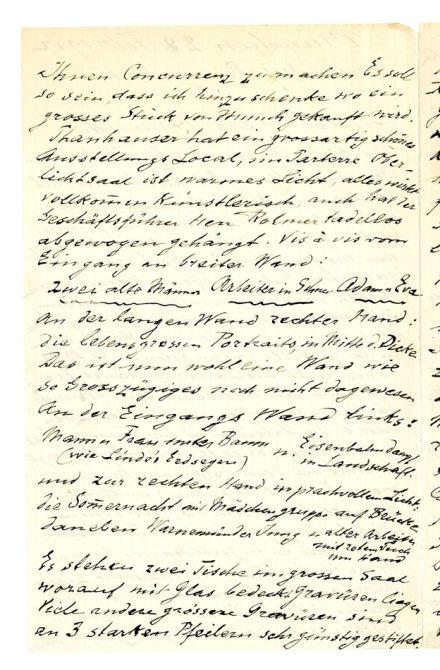 Ihnen Concurrenz zu machen Es soll
so sein, dass ich hinzuschenke wo ein
grosses Stück von Munch gekauft wird.
Thanhauser hat ein grossartig schönes
Ausstellungs Local, im Parterre Ober-
lichtsaal ist warmes Licht, alles wirkt
vollkommen Künstlerisch, auch hat der
Geschäftsführer Herr Kolmer tadellos
abgewogen gehängt. Vis à vis vom
Eingang an breiter Wand:
Zwei alte Männer Arbeiter im Schnee Adam u Eva
An der langen Wand rechter Hand:
die lebensgrossen Portraits in Mitte d. Dicke
Das ist nun wohl eine Wand wie
so Grosszügiges noch nicht dagewesen
An der Eingangs Wand links:
Mann u Frau unter Baum u. Eisenbahn dampf
(wie Linde's Erdsegen) in Landschaft.
und zur rechten Hand in prachvollem Licht:
die Somernacht mit Mädchengruppe auf Brücke
daneben Warnemünder Jung u alter Arbeiter
mit rotem Tuch
um Hand
Es stehen zwei Tische im grossen Saal
worauf mit Glas bedeckt Gravüren liegen
Viele andere grössere Gravüren sind
an 3 starken Pfeilern sehr günstig